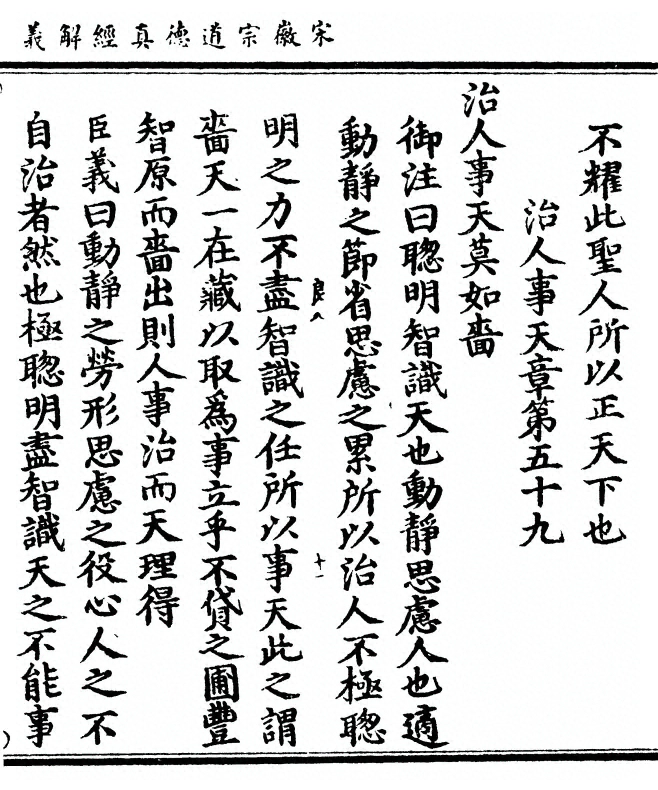 宋徽宗道德真經解義
不耀此聖人所以正天下也
治人事天章第五十九
治人事天莫如嗇
御注曰聦明智識天也動靜思慮人也適
動靜之節省思慮之累所以治人不極聦
明之力不盡智識之任所以事天此之謂
嗇天一在藏以取為事立乎不貸之圃豐
智原而嗇出則人事治而天理得
臣義曰動靜之勞形思慮之役心人之不
自治者然也極聦明盡智識天之不能事
良八
十一